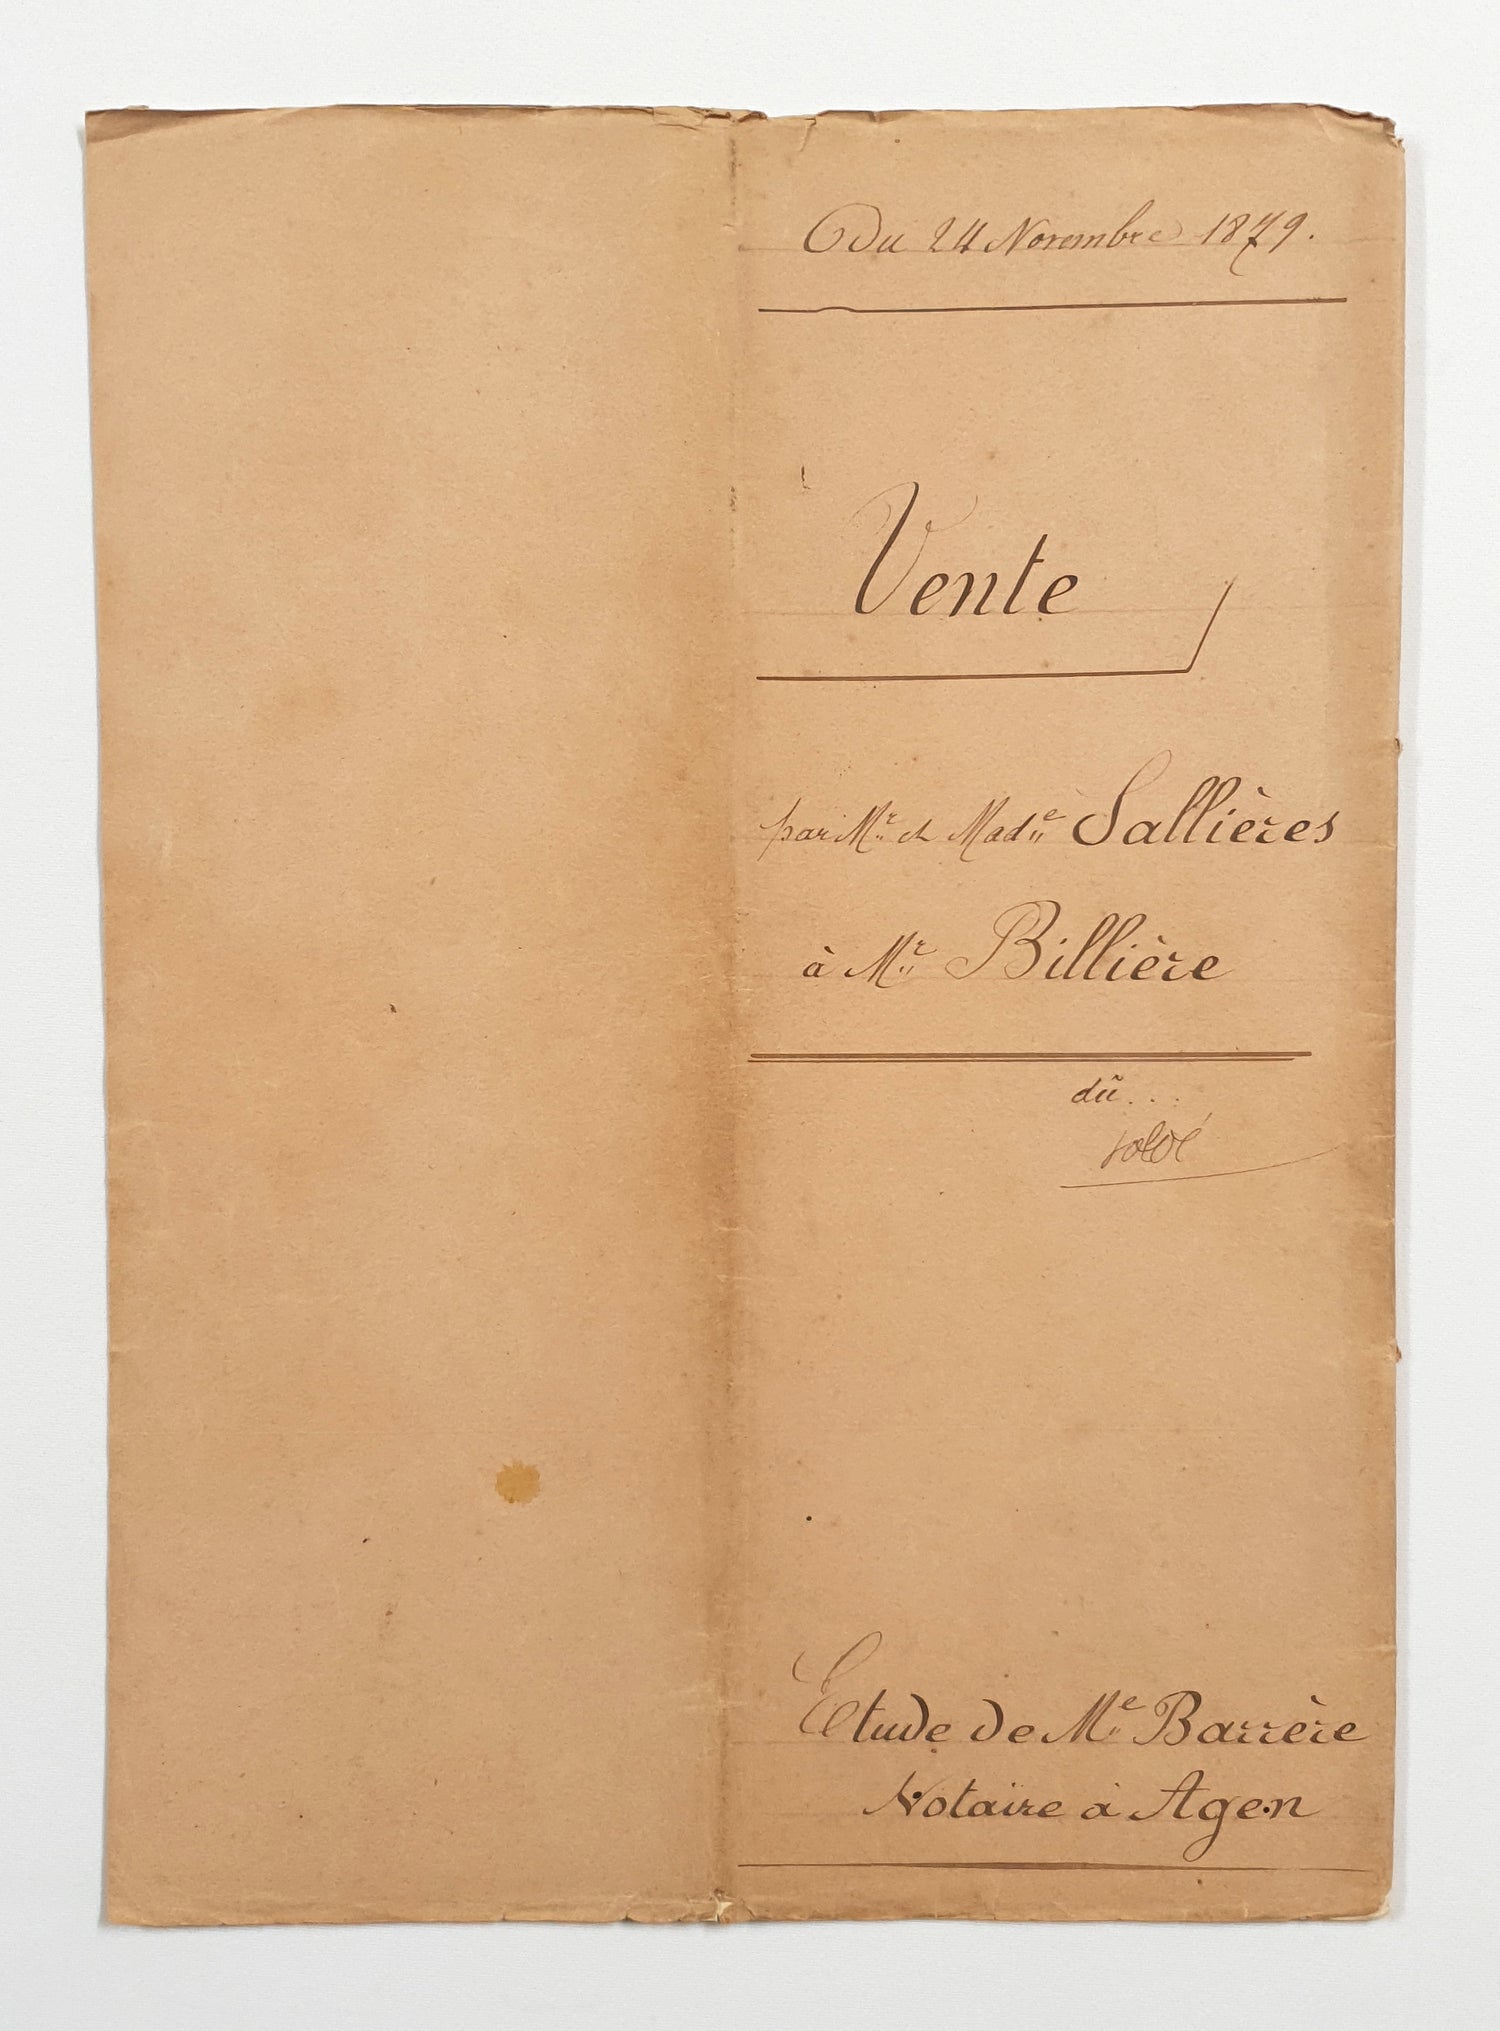 Du 24 Novembre 1879.
Vente
par Mr et Made Sallières
à Mr Billière
dû...
soldé
Etude de Me Barrère
Notaire à Agen